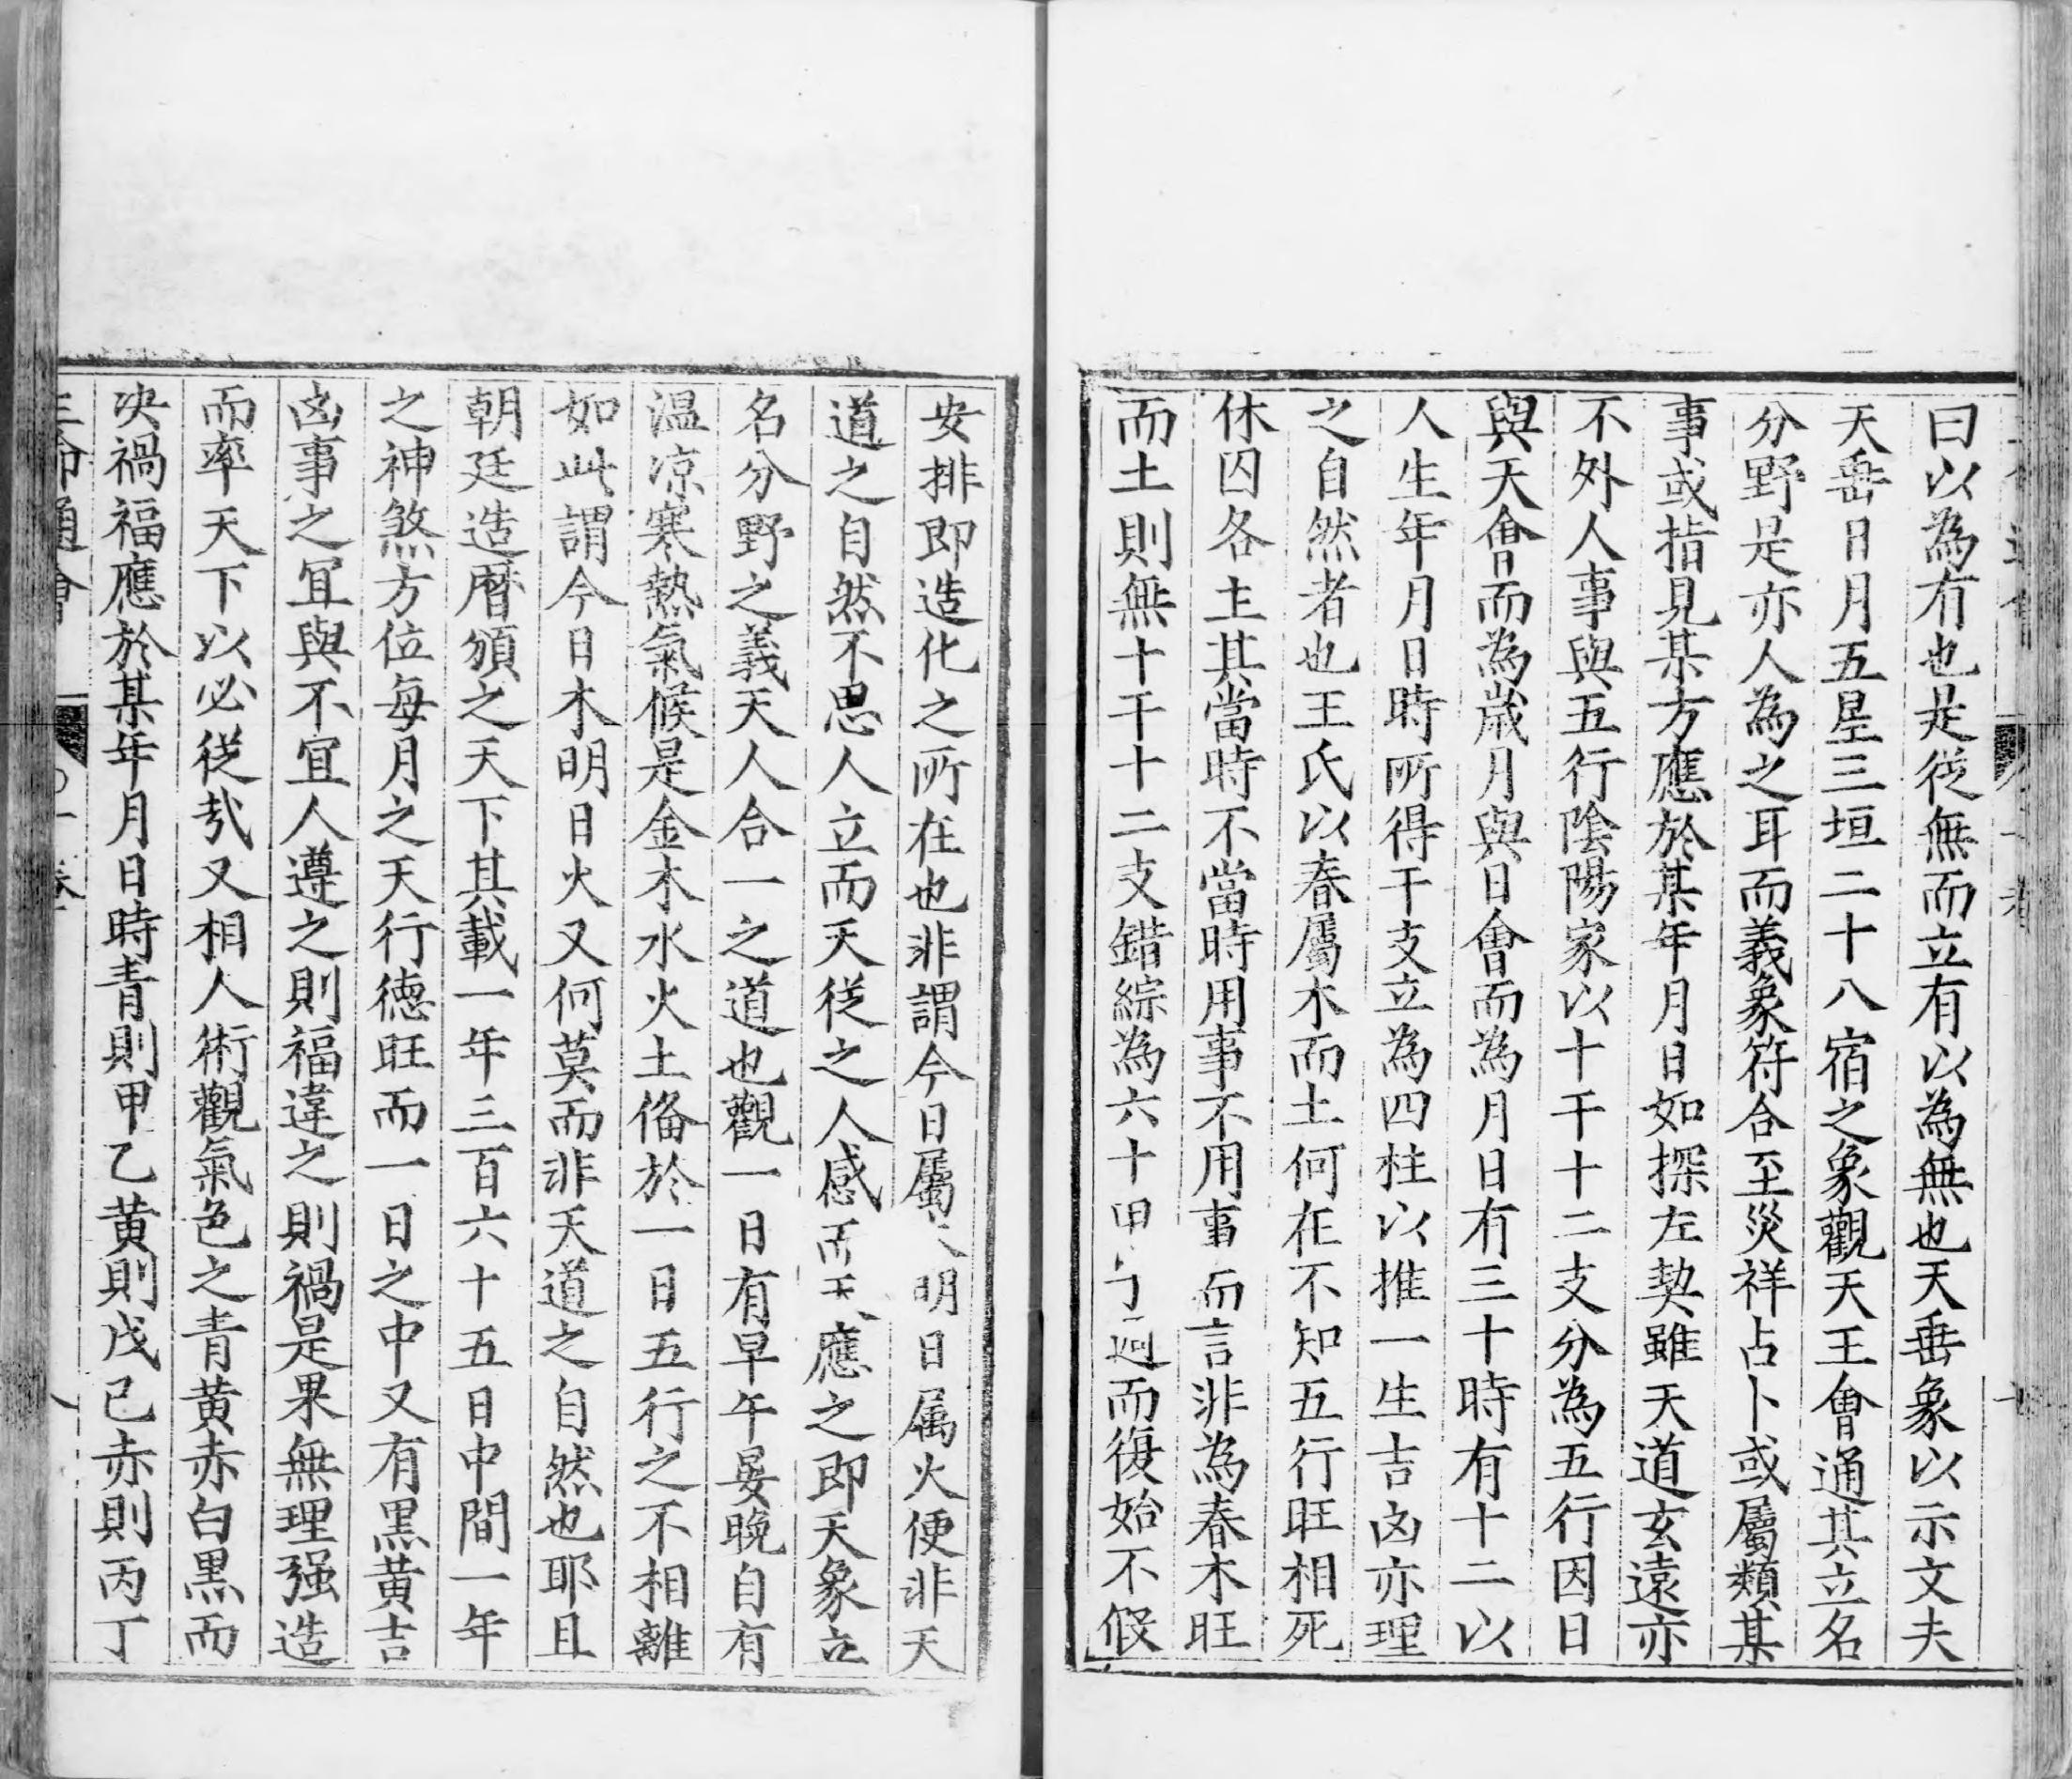 曰以為有也是從無而立有以為無也天垂象以示文夫
天垂日月五星三垣二十八宿之象觀天王會通其立名
分野是亦人為之耳而義象符合至災祥占卜或屬類某
事或指見某方應於某年月日如探左契雖天道玄遠亦
不外人事與五行陰陽家以十干十二支分為五行因日
與天會而為歲月與日會而為月日有三十時有十二以
人生年月日時所得干支立為四柱以推一生吉凶亦理
之自然者也王氏以春屬木而土何在不知五行旺相死
休囚各主其當時不當時用事不用事而言非為春木旺
而土則無十干十二支錯綜為六十甲子迴而復始不假
安排即造化之所在也非謂今日屬明日属火便非天
道之自然不思人立而天從之人感而天應之即天象立
名分野之義天人合一之道也觀一日有早午晏晚自有
温凉寒熱氣候是金木水火土俻於一日五行之不相離
如此謂今日木明日火又何莫而非天道之自然也耶且
朝廷造曆頒之天下其載一年三百六十五日中間一年
之神煞方位每月之天行德旺而一日之中又有黑黄吉
凶事之冝與不冝人遵之則福違之則禍是果無理强造
而率天下以必從㢤又相人術觀氣色之青黄赤白黒而
决禍福應於某年月日時青則甲乙黄則戊己赤則丙丁
三命通會
卷一
八